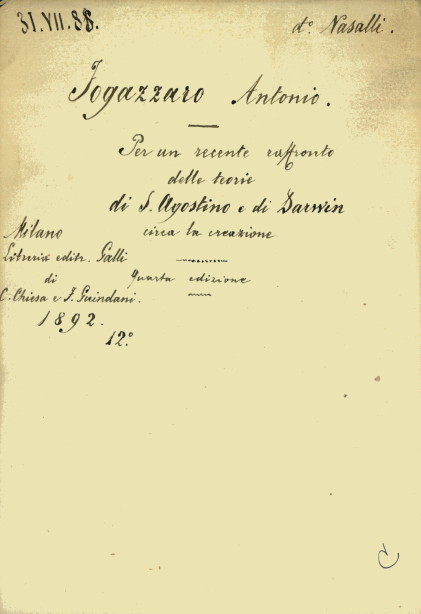 31.VII.88.
d°. Nasalli.
Fogazzaro Antonio.
Per un recente raffronto
delle teorie
di S. Agostino e di Darwin
circa la creazione
Quarta edizione
Milano
Libreria editr. Galli
di
C. Chiesa e F. Guindani.
1892.
12°